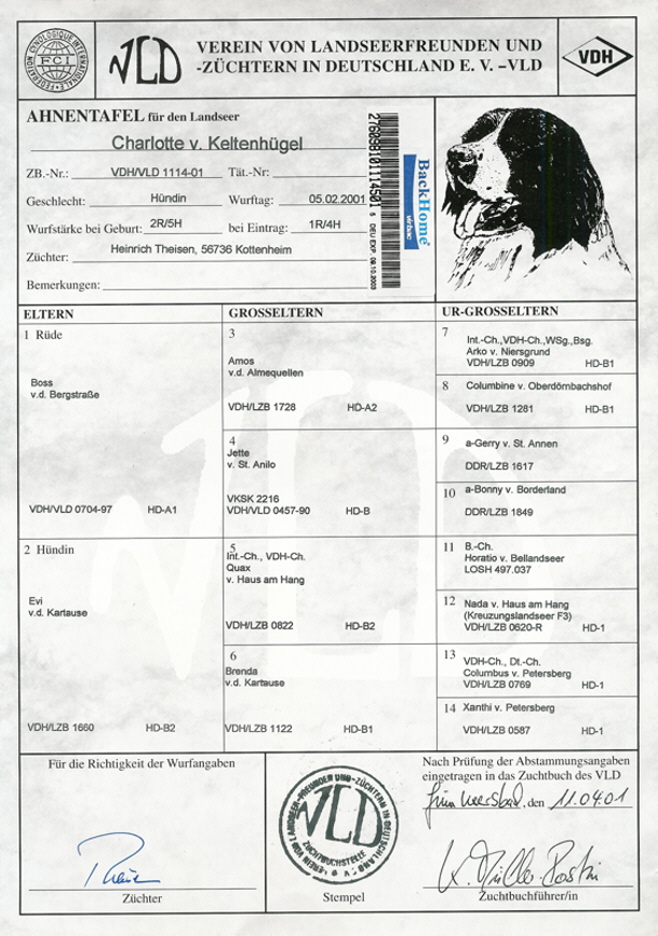 FEDERATION CYNOLOGIQUE INTERNATIONALE
FCI
VLD
VEREIN VON LANDSEERFREUNDEN UND
-ZÜCHTERN IN DEUTSCHLAND E. V. –VLD
VDH
AHNENTAFEL für den Landseer
Charlotte v. Keltenhügel
ZB.-Nr.: VDH/VLD 1114-01 Tät.-Nr:
Geschlecht: Hündin Wurftag: 05.02.2001
Wurfstärke bei Geburt: 2R/5H bei Eintrag: 1R/4H
Züchter: Heinrich Theisen, 56736 Kottenheim
Bemerkungen:
276098101114501
DEU EXP. 09.10.2003
BackHome
virbac
ELTERN
1 Rüde
Boss
v.d. Bergstraße
VDH/VLD 0704-97 HD-A1
2 Hündin
Evi
v.d. Kartause
VDH/LZB 1660 HD-B2
GROSSELTERN
3
Amos
v.d. Almequellen
VDH/LZB 1728 HD-A2
4
Jette
v. St. Anilo
VKSK 2216
VDH/VLD 0457-90 HD-B
5
Int.-Ch., VDH-Ch.
Quax
v. Haus am Hang
VDH/LZB 0822 HD-B2
6
Brenda
v.d. Kartause
VDH/LZB 1122 HD-B1
UR-GROSSELTERN
7
Int.-Ch.,VDH-Ch.,WSg.,Bsg.
Arko v. Niersgrund
VDH/LZB 0909 HD-B1
8 Columbine v. Oberdörnbachshof
VDH/LZB 1281 HD-B1
9 a-Gerry v. St. Annen
DDR/LZB 1617
10 a-Bonny v. Borderland
DDR/LZB 1849
11 B.-Ch.
Horatio v. Bellandseer
LOSH 497.037
12 Nada v. Haus am Hang
(Kreuzungslandseer F3)
VDH/LZB 0620-R HD-1
13 VDH-Ch., Dt.-Ch.
Columbus v. Petersberg
VDH/LZB 0769 HD-1
14 Xanthi v. Petersberg
VDH/LZB 0587 HD-1
Für die Richtigkeit der Wurfangaben
Züchter
VEREIN VON LANDSEER-FREUNDEN UND -ZÜCHTERN IN DEUTSCHLAND
VLD
ZUCHTBUCHSTELLE
Stempel
Nach Prüfung der Abstammungsangaben
eingetragen in das Zuchtbuch des VLD
, den 11.04.01
Zuchtbuchführer/in